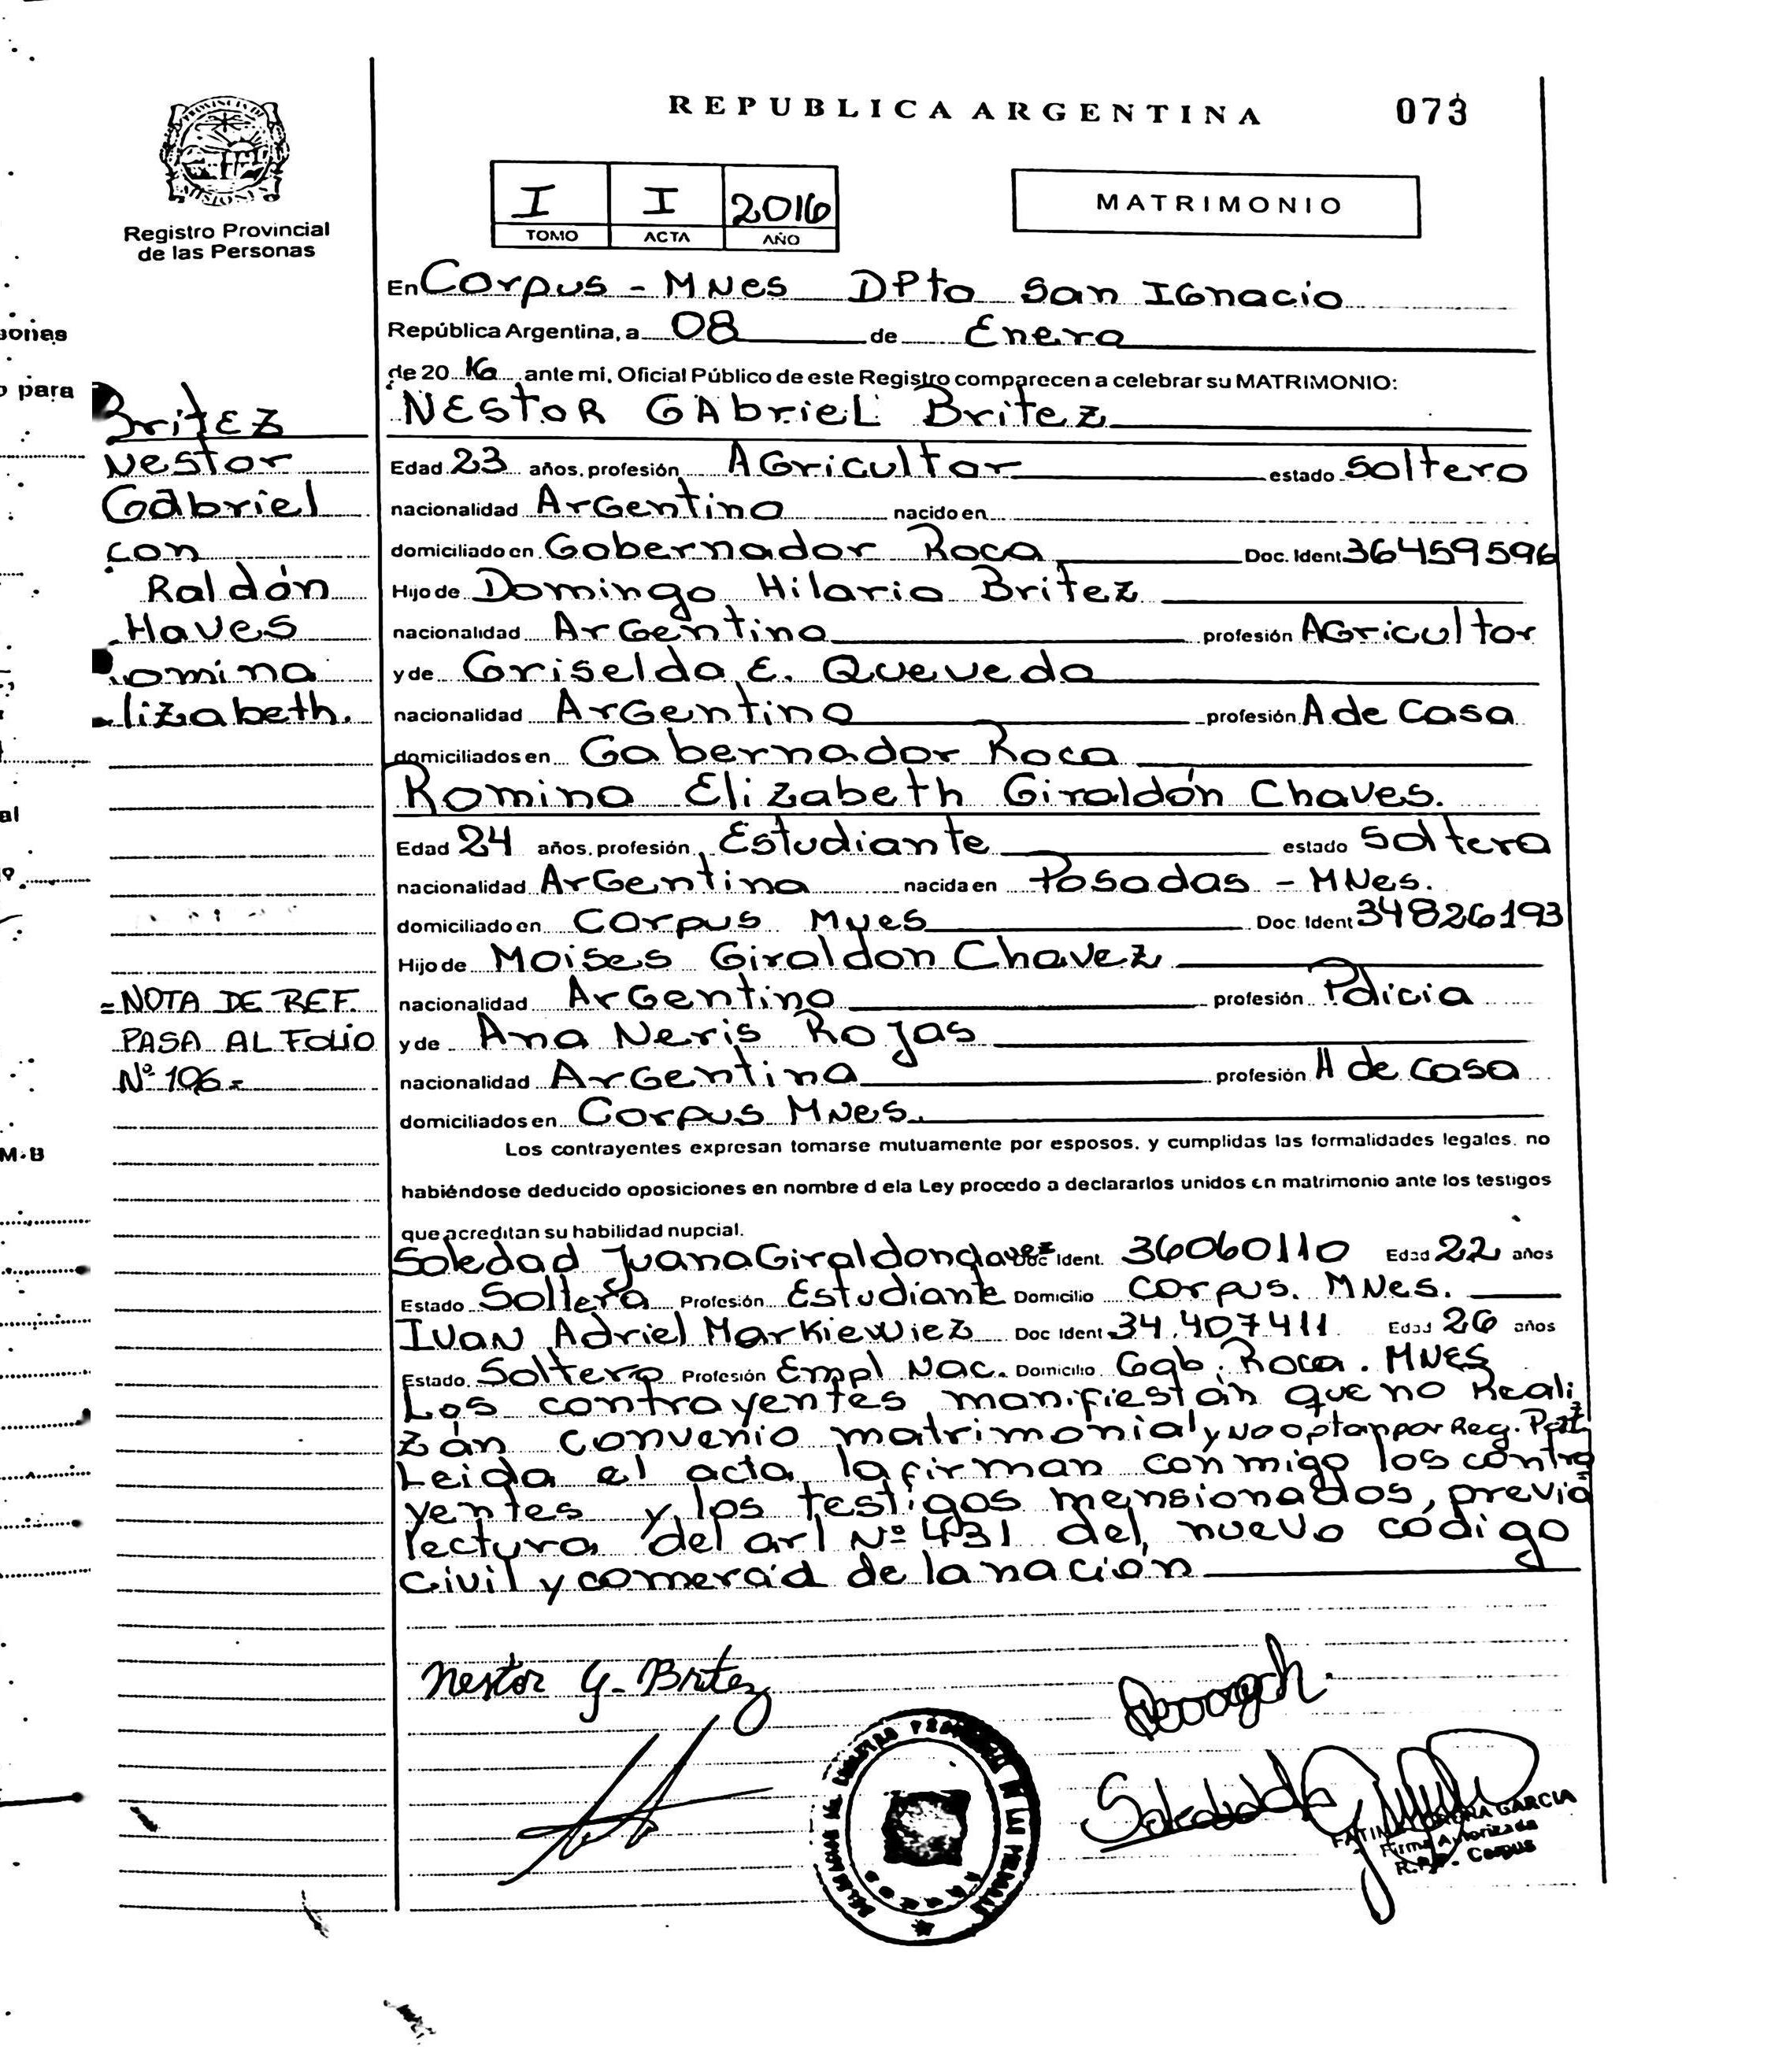 REPUBLICA ARGENTINA 073
I I 2016
TOMO ACTA AÑO
MATRIMONIO
Registro Provincial
de las Personas
En Corpus - MNes DPto San IGnacio
República Argentina, a 08 de Enero
de 20 16 ante mi, Oficial Público de este Registro comparecen a celebrar su MATRIMONIO:
NESTOR GAbrieL Britez
Edad 23 años, profesión AGricultor estado Soltero
nacionalidad ArGentino nacido en
domiciliado en Gobernador Roca Doc. Ident 36459596
Hijo de Domingo Hilario Britez
nacionalidad ArGentino profesión AGricultor
y de Griselda E. Quevedo
nacionalidad ArGentina profesión A de Casa
domiciliados en Gobernador Roca
Romina Elizabeth Giraldón Chaves.
Edad 24 años, profesión Estudiante estado Soltera
nacionalidad ArGentina nacida en Posadas - MNes.
domiciliado en Corpus MNes Doc. Ident 34826193
Hijo de Moises Giraldon Chavez
nacionalidad ArGentino profesión Policia
y de Ana Neris Rojas
nacionalidad ArGentina profesión A de casa
domiciliados en Corpus MNes.
Los contrayentes expresan tomarse mutuamente por esposos, y cumplidas las formalidades legales, no
habiéndose deducido oposiciones en nombre d ela Ley procedo a declararlos unidos en matrimonio ante los testigos
que acreditan su habilidad nupcial.
Soledad Juana Giraldon Doc Ident. 36060110 Edad 22 años
Estado Soltera Profesión Estudiante Domicilio Corpus. MNes.
Ivan Adriel Markiewiez Doc Ident 34.407411 Edad 26 años
Estado Soltero Profesión Empl Nac. Domicilio Gob. Roca. MNES
Los contrayentes manifiestán que no Reali
zán convenio matrimonial y No optan por Reg. Pat
Leida el acta, la firman conmigo los contra
yentes y los testigos mensionados, previa
lectura del art Nº 431 del nuevo código
Civil y comercial de la nación
Britez
Nestor
Gabriel
con
Raldón
Haves
omina
lizabeth.
= NOTA DE REF.
PASA AL FOLIO
Nº 106 =
Nestor G. Britez
Soledad
GARCIA
Firma Autorizada
R.P.P. - Corpus
sonas
o para
al
M-B